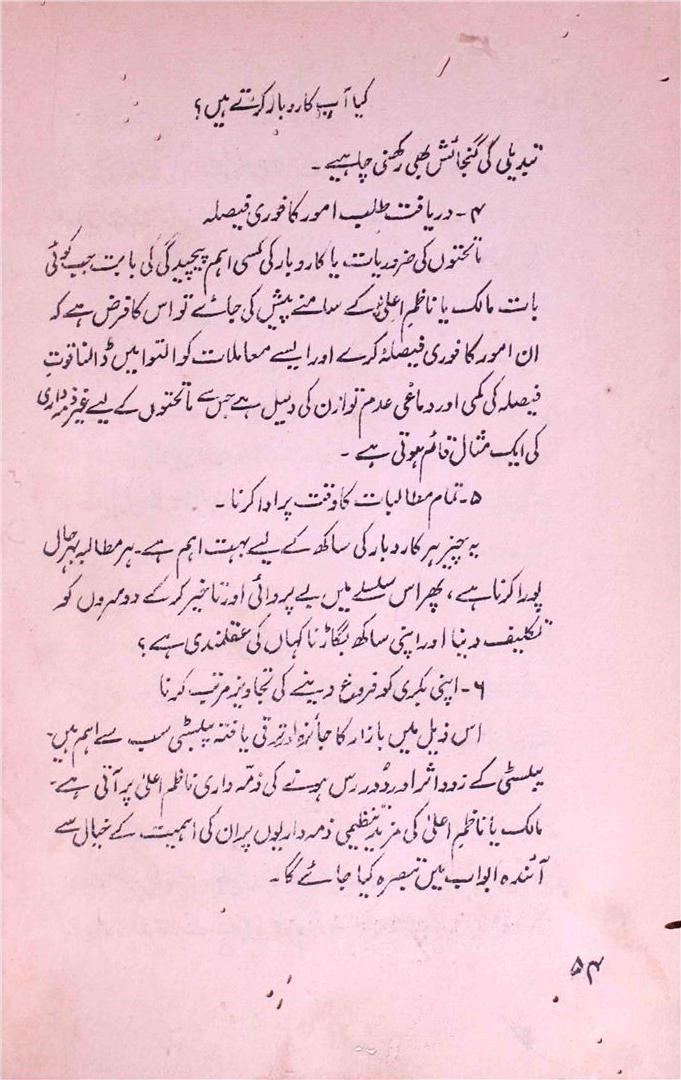 کیا آپ کاروبار کرتے ہیں؟
تبدیلی کی گنجائش بھی رکھنی چاہیے ۔
۴۔ دریافت طلب امور کا فوری فیصلہ
ماتحتوں کی ضروریات یا کاروبار کی کسی اہم پیچیدگی کی بابت جب کوئی
بات مالک یا ناظمِ اعلیٰ کے سامنے پیش کی جائے تو اس کا فرض ہے کہ
ان امور کا فوری فیصلہ کرے اور ایسے معاملات کو التوا میں ڈالنا قوتِ
فیصلہ کی کمی اور دماغی عدم توازن کی دلیل ہے جس سے ماتحتوں کے لیے غیر ذمہ داری
کی ایک مثال قائم ہوتی ہے ۔
۵۔ تمام مطالبات کا وقت پر ادا کرنا ۔
یہ چیز ہر کاروبار کی ساکھ کے لیے بہت اہم ہے۔ ہر مطالبہ بہرحال
پورا کرنا ہے، پھر اس سلسلے میں بے پروائی اور تاخیر کر کے دوسروں کو
تکلیف دینا اور اپنی ساکھ بگاڑنا کہاں کی عقلمندی ہے؟
۶۔ اپنی بکری کو فروغ دینے کی تجاویز مرتب کرنا
اس ذیل میں بازار کا جائزہ اور ترقی یافتہ پبلسٹی سب سے اہم ہیں۔
پبلسٹی کے زود اثر اور دُور رس ہونے کی ذمّہ داری ناظم اعلیٰ پر آتی ہے۔
مالک یا ناظمِ اعلیٰ کی مزید تنظیمی ذمہ داریوں پر ان کی اہمیت کے خیال سے
آئندہ ابواب میں تبصرہ کیا جائے گا۔
۵۴